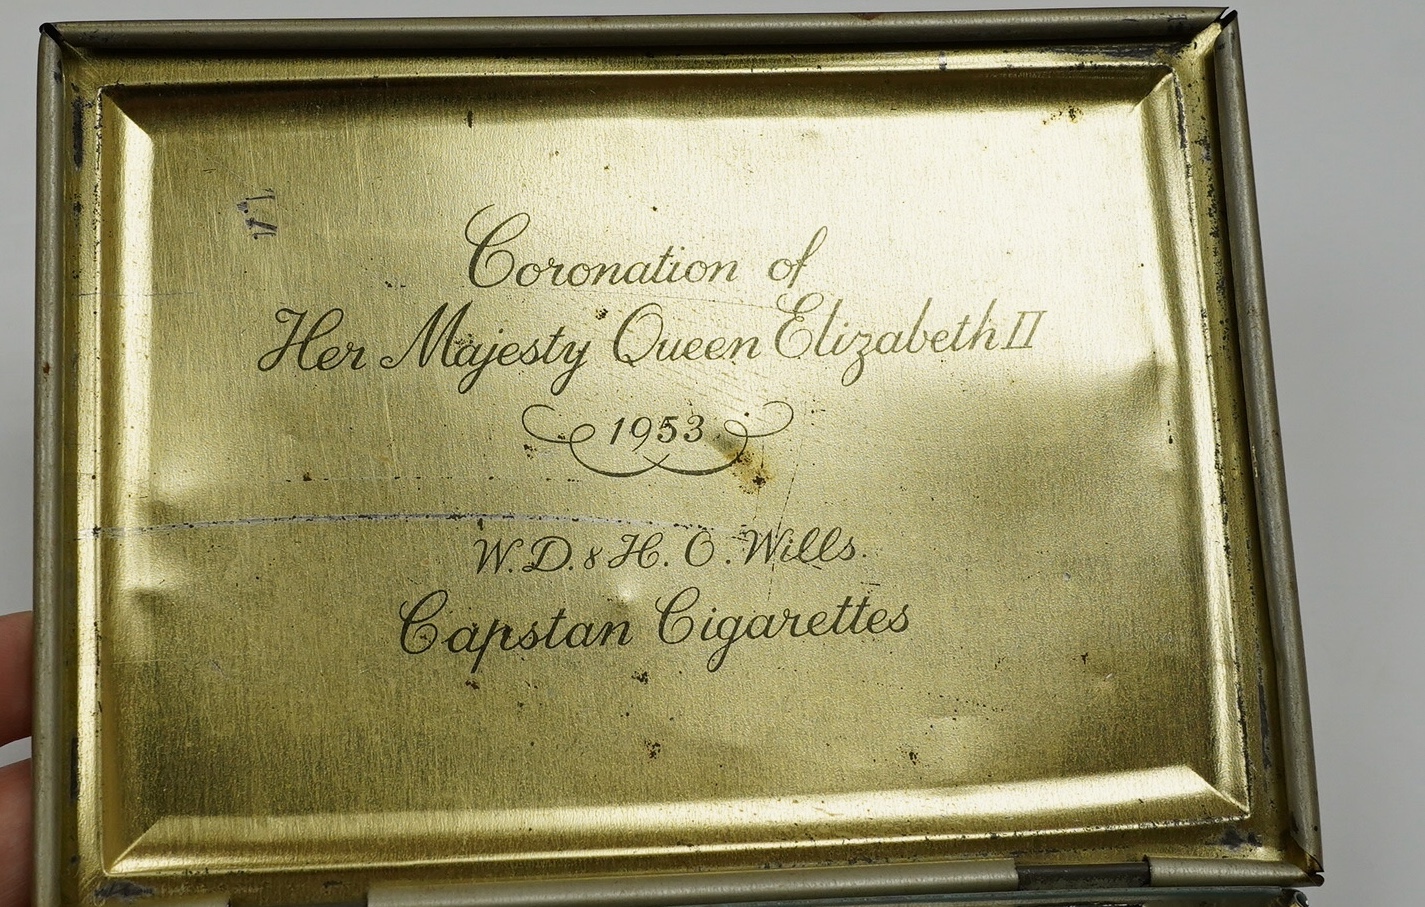 Coronation of
Her Majesty Queen Elizabeth II
1953
W. D. & H. O. Wills.
Capstan Cigarettes